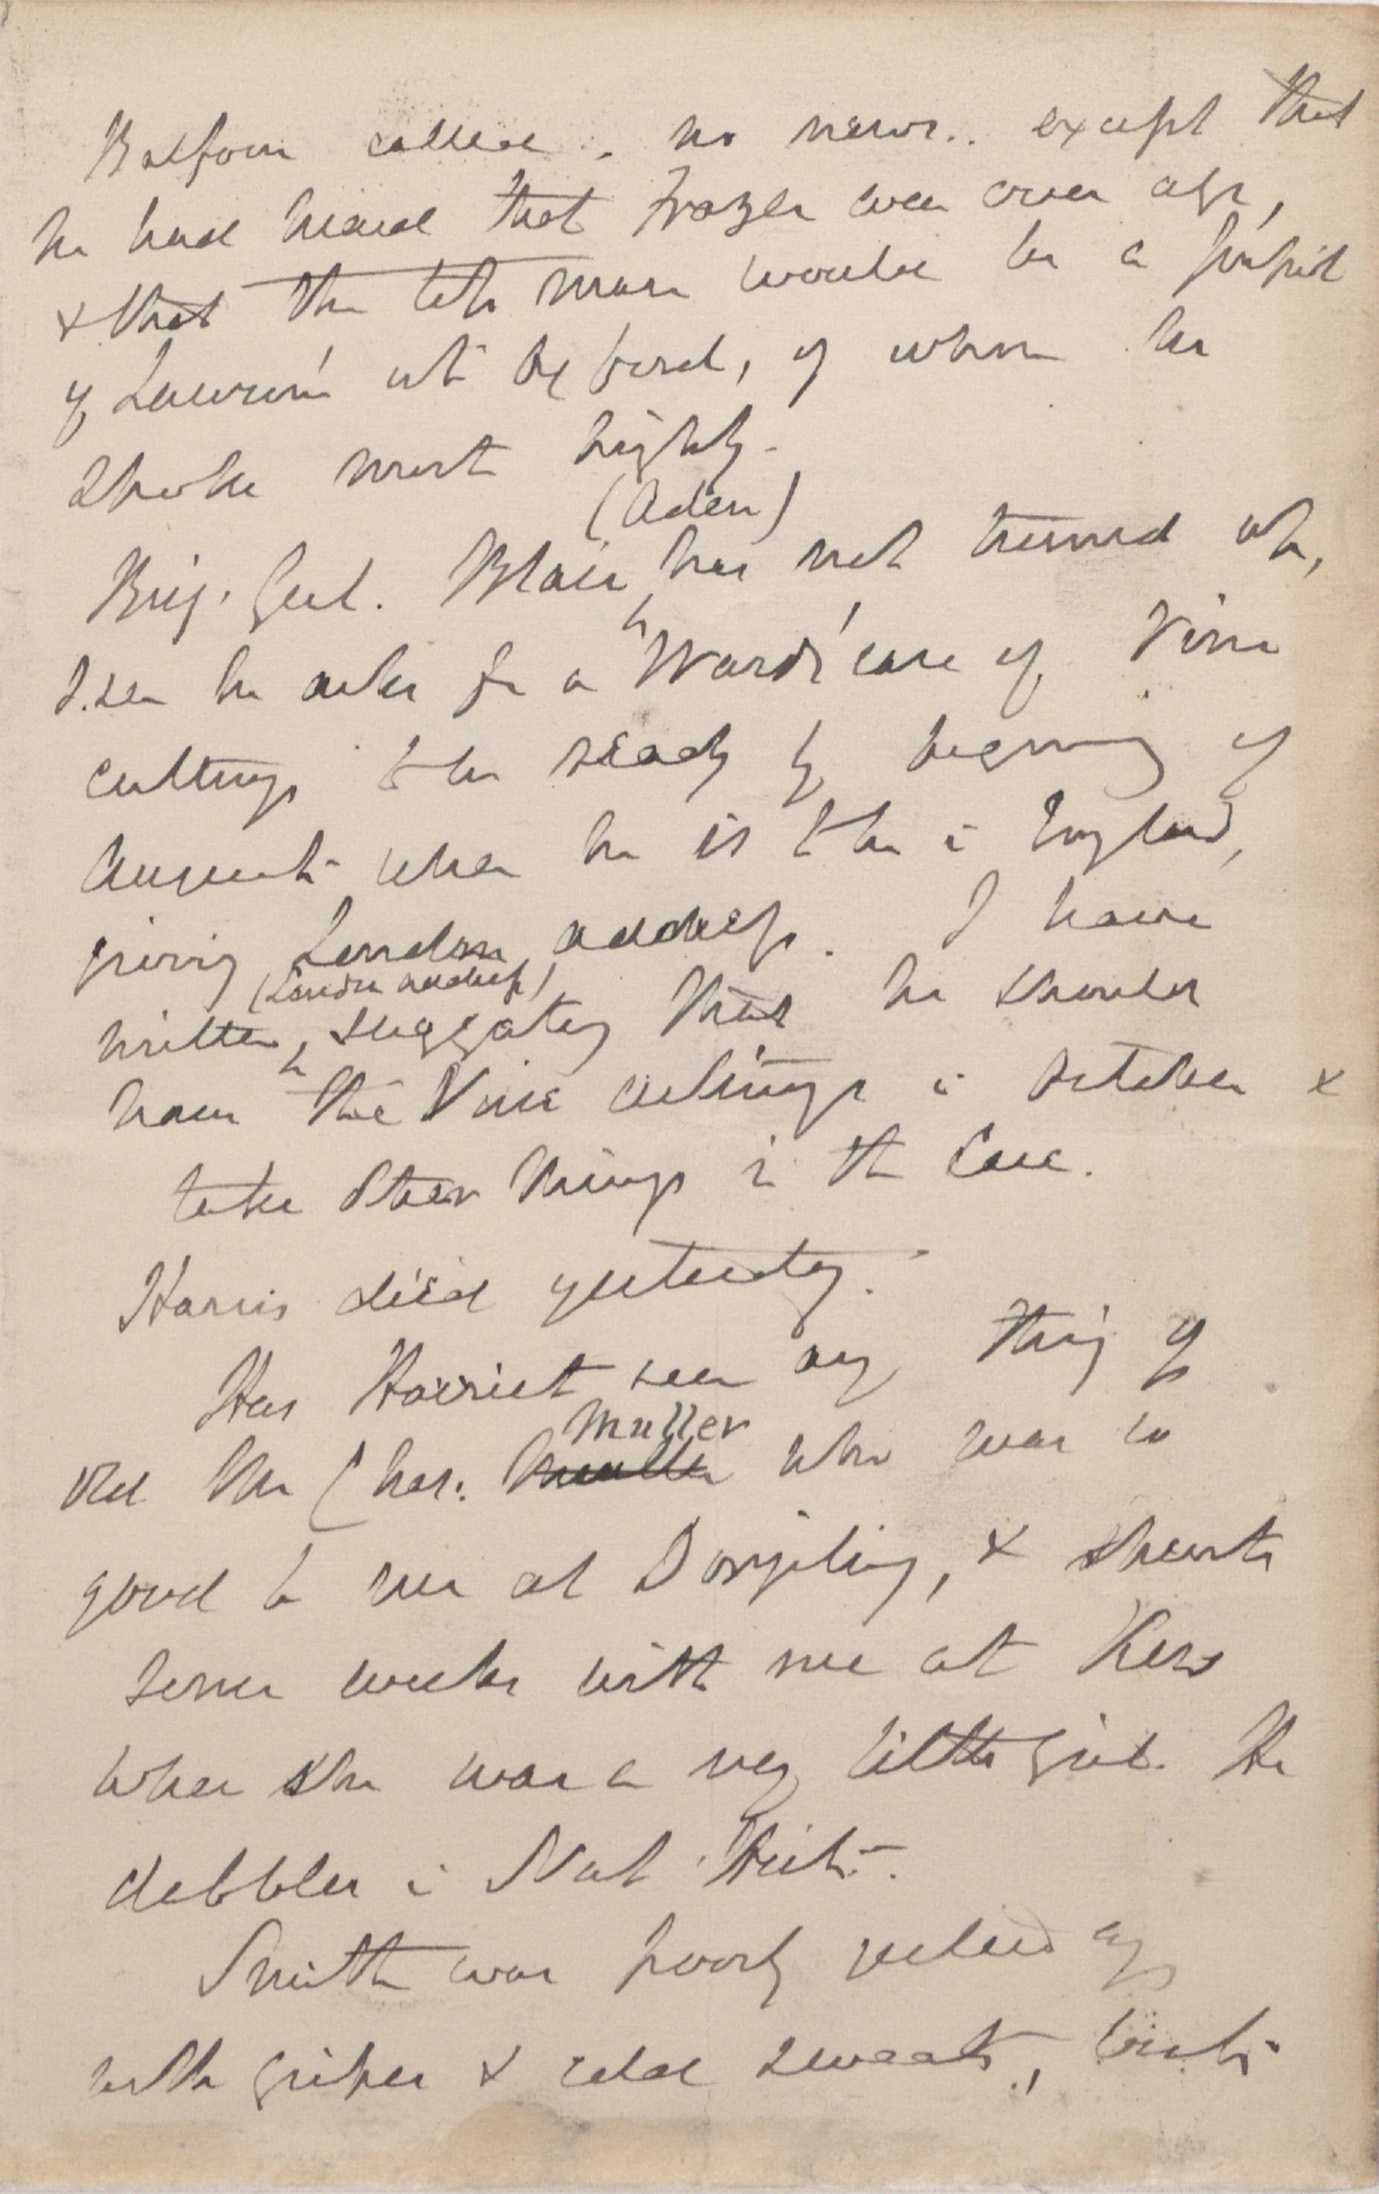 Balfour called. no news.. except that
he had heard that Frazer was over age,
& that the man would be a pupil
of Lawson's at Oxford, of whom he
spoke most highly.
(Aden)
Brig. Genl. Blair has not turned up,
I see he asks for a "Wards' case of Vine
cuttings to be ready by beginning of
August when he is to be in England,
giving London address. I have
(London address)
written suggesting that he should
have the Vine cuttings in October &
take other things in the Case.
Harris died yesterday.
Has Harriet seen any thing of
old Mr Chas: Muller who was so
good to me at Dorjiling, & spent
some weeks with me at Kew
when she was a very little girl. He
dabbles in Nat. Hist.
Smith was poorly yesterday
with gripes & cold sweats, but